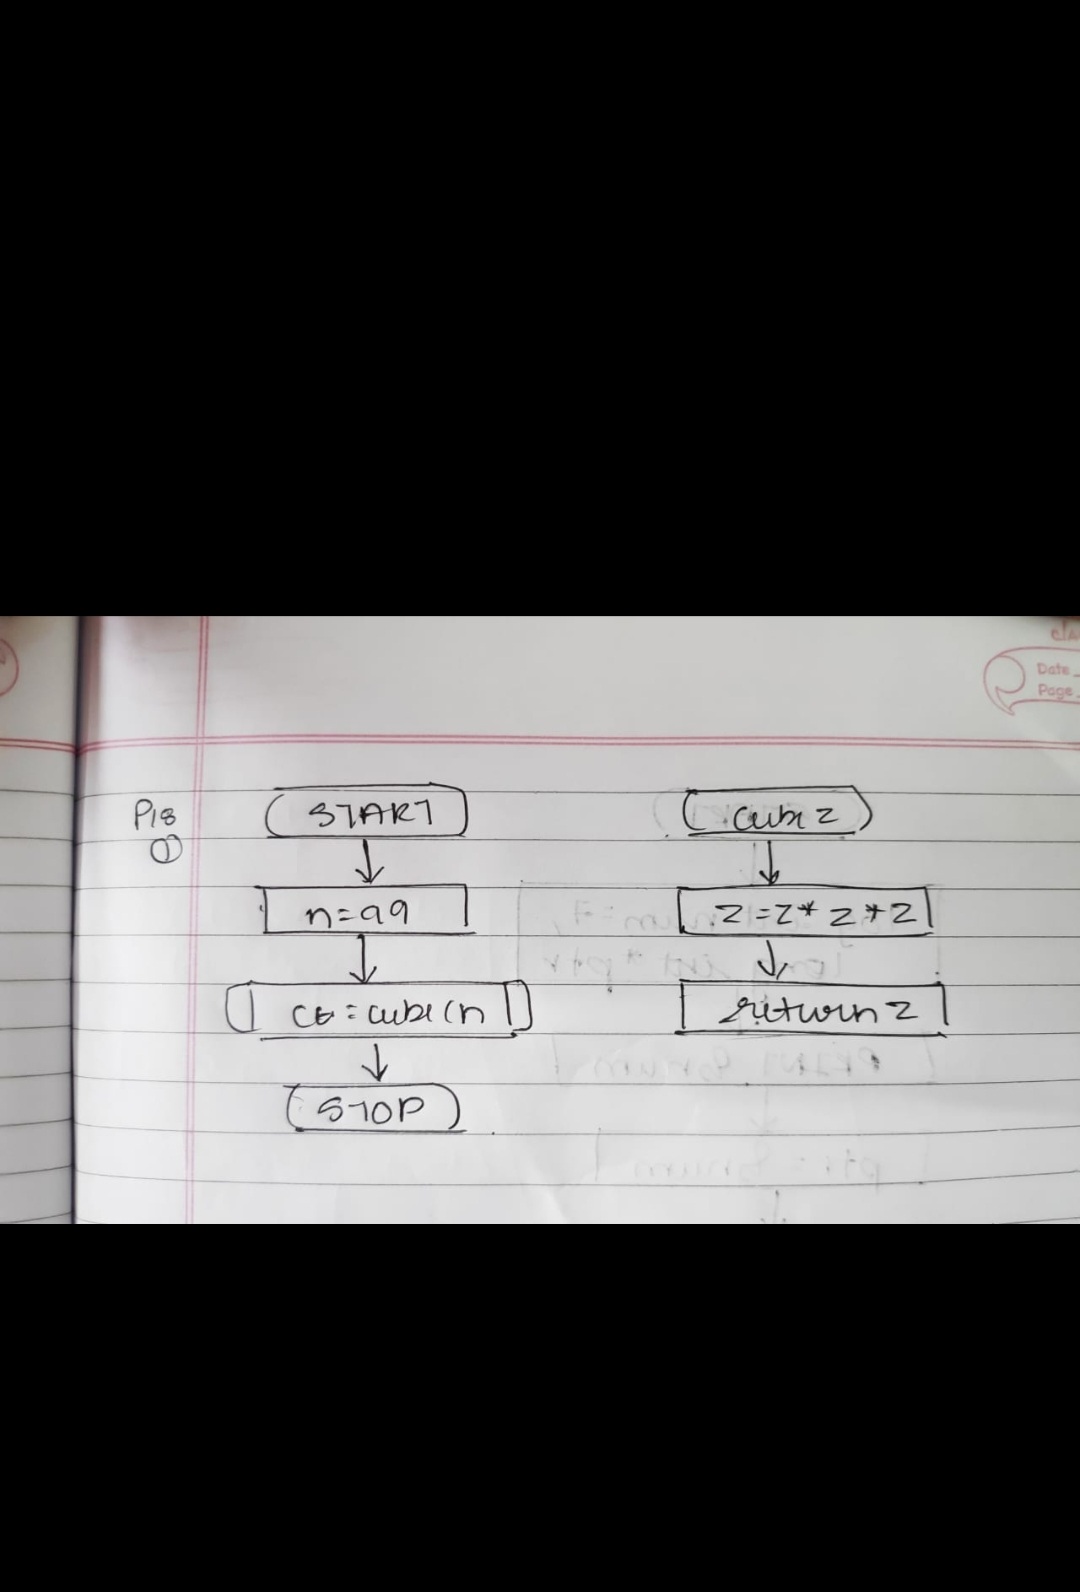 Date
Page
P18
①
START
n=99
STOP
cube z
z=z* z *z
return z